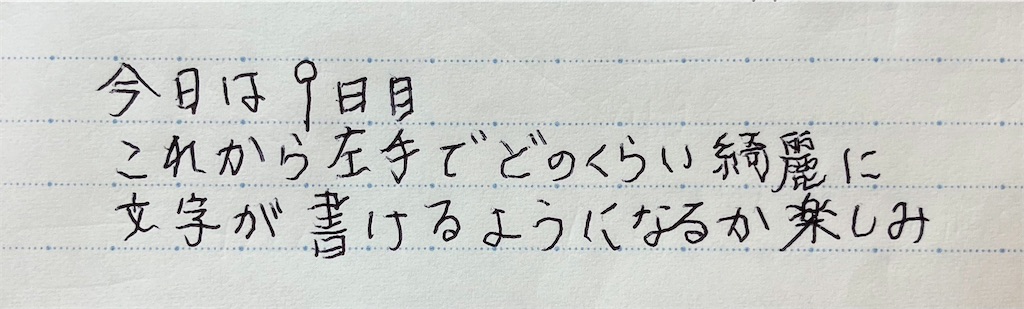 今日は9日目
これから左手でどのくらい綺麗に
文字が書けるようになるか楽しみ